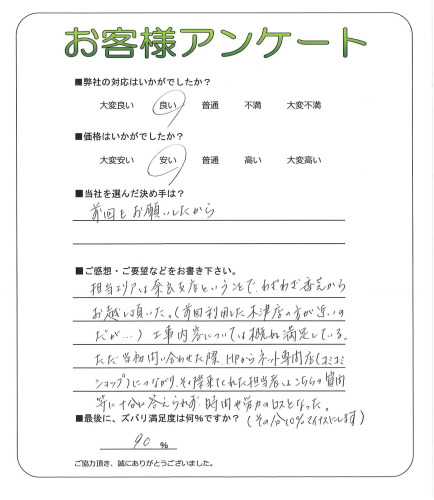 お客様アンケート
■弊社の対応はいかがでしたか？
大変良い 良い 普通 不満 大変不満
■価格はいかがでしたか？
大変安い 安い 普通 高い 大変高い
■当社を選んだ決め手は？
前回もお願いしたから
■ご感想・ご要望などをお書き下さい。
担当エリアは奈良支店ということで、わざわざ奈良から
お越し頂いた。(前回利用した木津店の方が近いの
だが…) 工事内容については概ね満足している。
ただ当初問い合わせた際、HPからネット専門店(コミコミ
ショップ)につながり、その際来てくれた担当者はこちらの質問
等に十分に答えられず、時間や労力のロスとなった。
■最後に、ズバリ満足度は何％ですか？ (その分10%マイナスにします)
90 %
ご協力頂き、誠にありがとうございました。